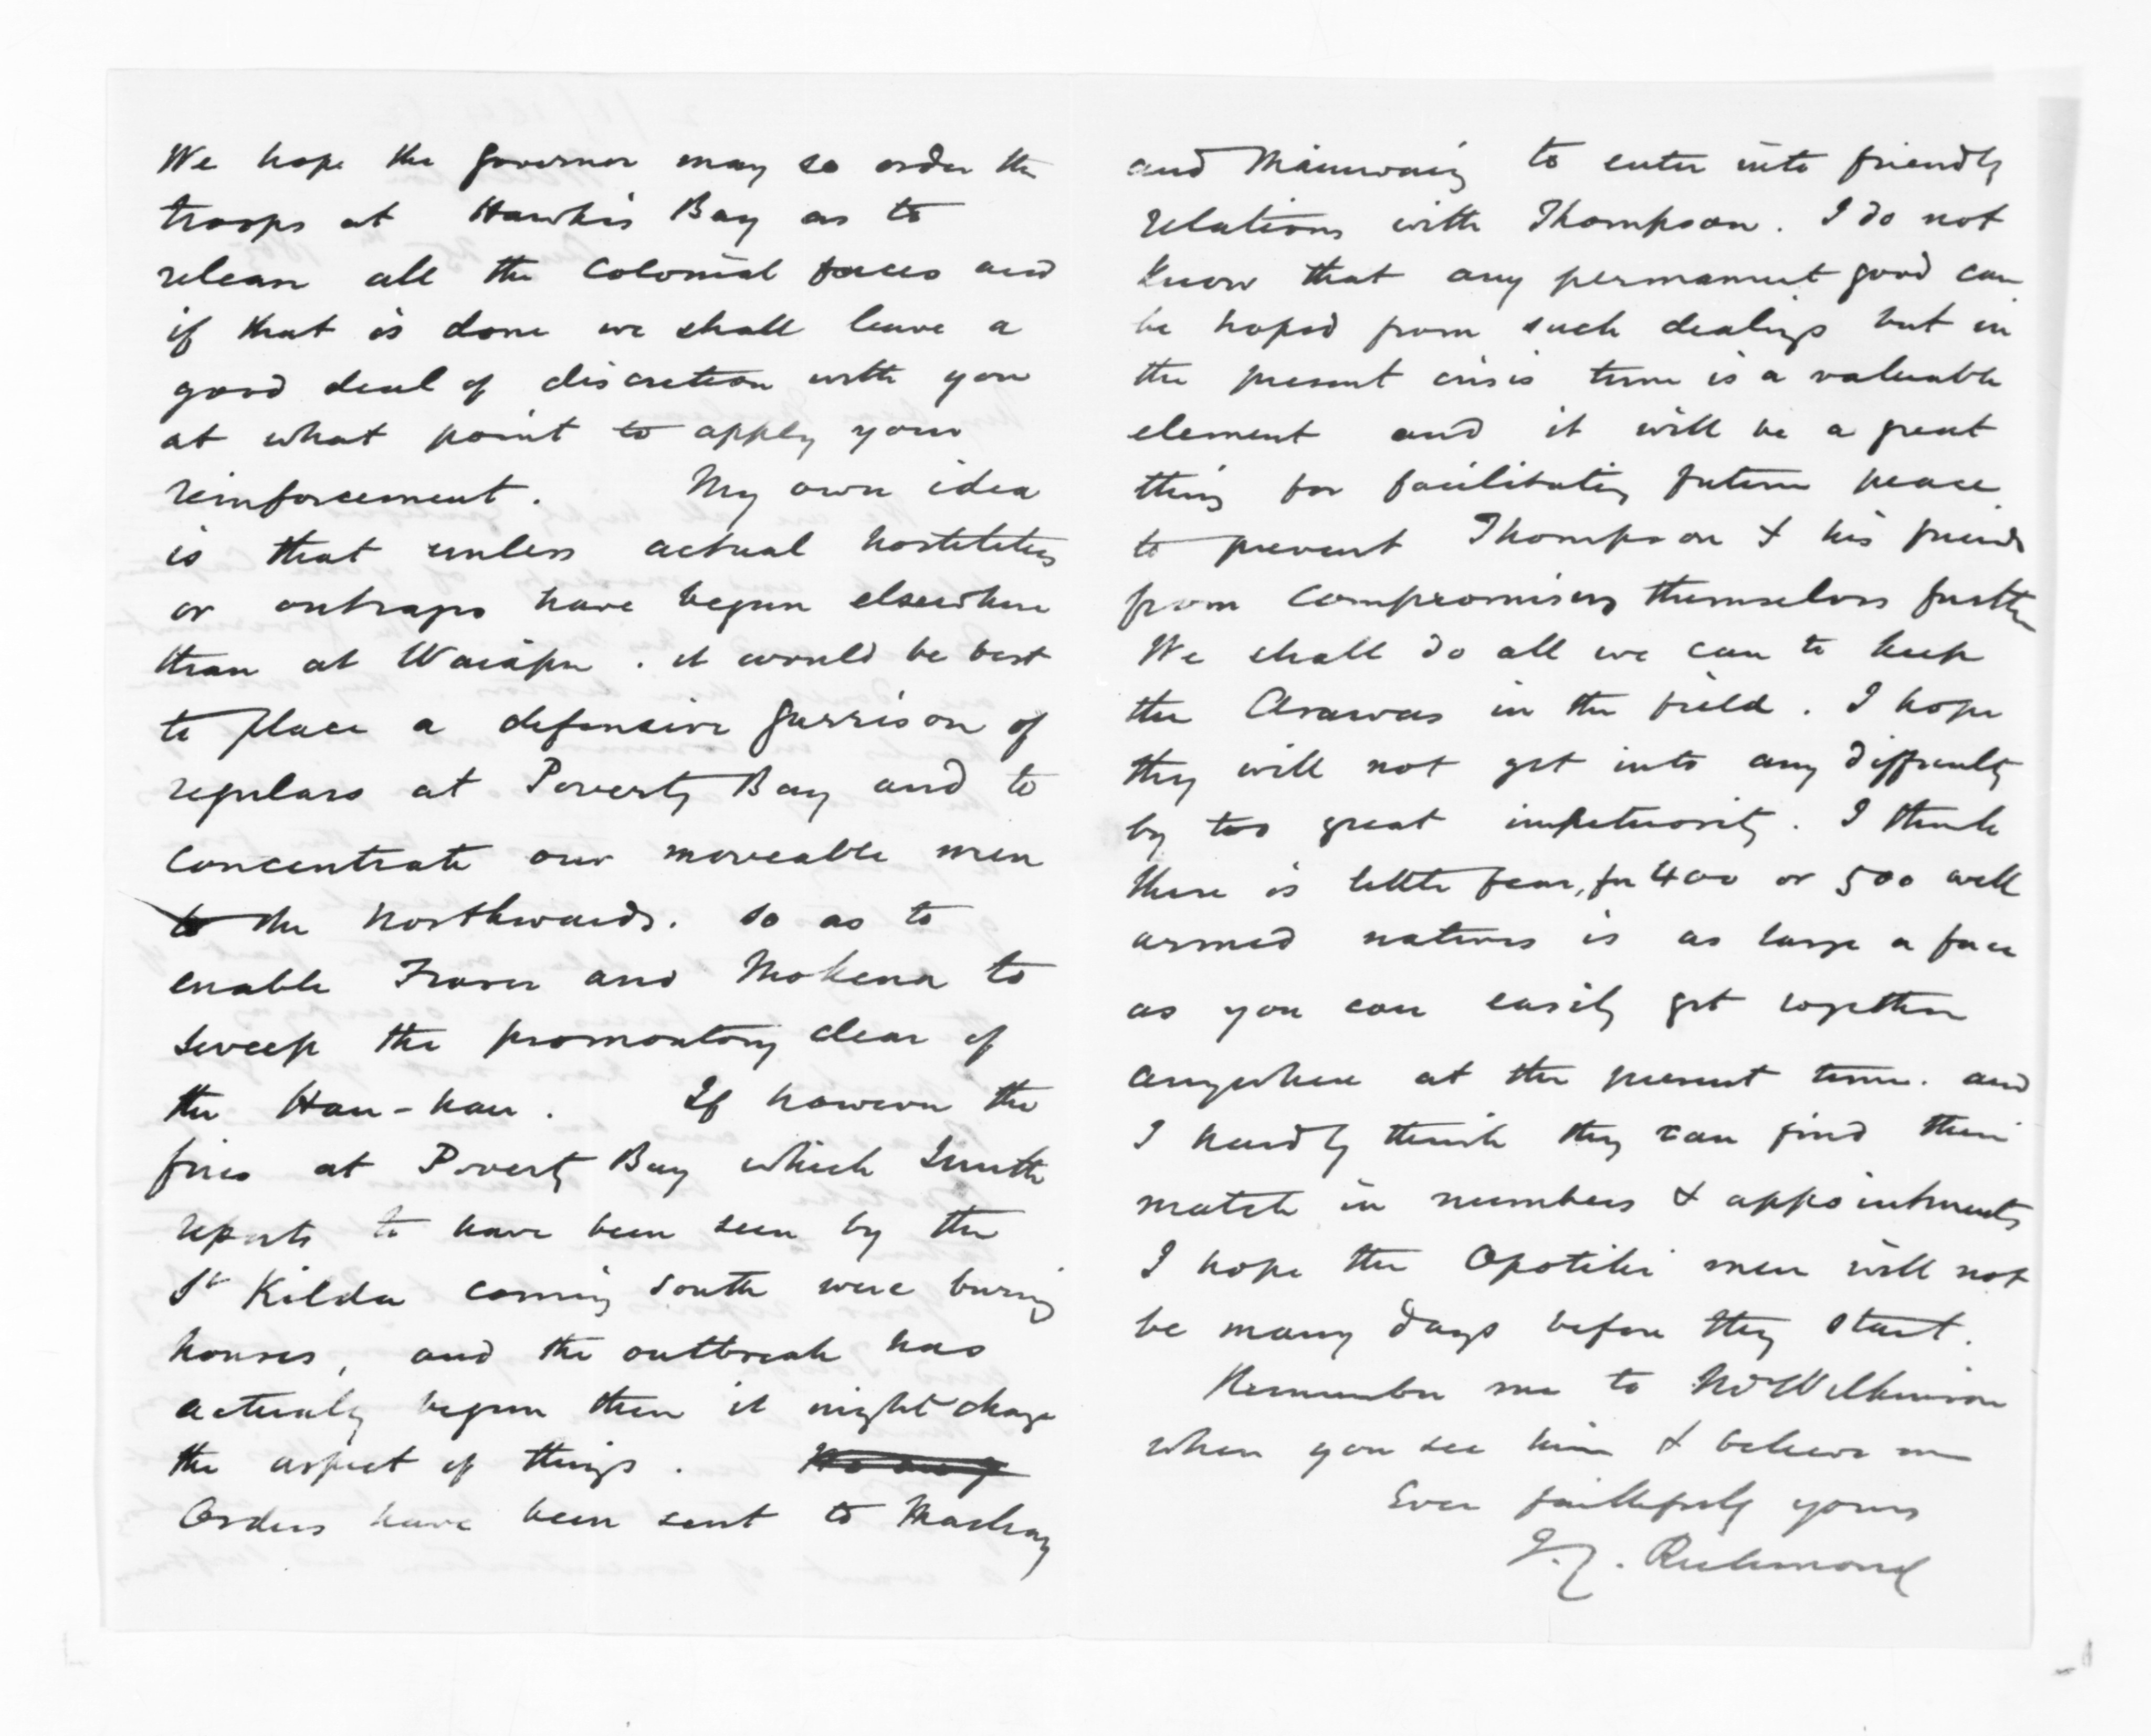 We hope the Governor may so order the
troops at Hawke's Bay as to
release all the Colonial forces and
if that is done we shall leave a
good deal of discretion with you
at what point to apply your
reinforcement. My own idea
is that unless actual hostilities
or outrages have begun elsewhere
than at Waiapu. it would be best
to place a defensive garrison of
regulars at Poverty Bay and to
concentrate our moveable men
to the Northwards. so as to
enable Fraser and Mokena to
sweep the promontory clear of
the Hau-hau. If however the
fires at Poverty Bay which Smith
reports to have been seen by the
St Kilda coming south were burning
houses, and the outbreak has
actually begun then it might change
the aspect of things.
Orders have been sent to Mackay
and Mainwaring to enter into friendly
relations with Thompson. I do not
know that any permanent good can
be hoped from such dealings but in
the present crisis time is a valuable
element and it will be a great
thing for facilitating future peace
to prevent Thompson & his friends
from compromising themselves further
We shall do all we can to keep
the Arawas in the field. I hope
they will not get into any difficulty
by too great impetuosity. I think
there is little fear, for 400 or 500 well
armed natives is as large a force
as you can easily get together
anywhere at the present time. and
I hardly think they can find their
match in numbers & appointments
I hope the Opotiki men will not
be many days before they start.
Remember me to Mr Wilkinson
when you see him & believe me
Ever faithfully yours
J.C. Richmond